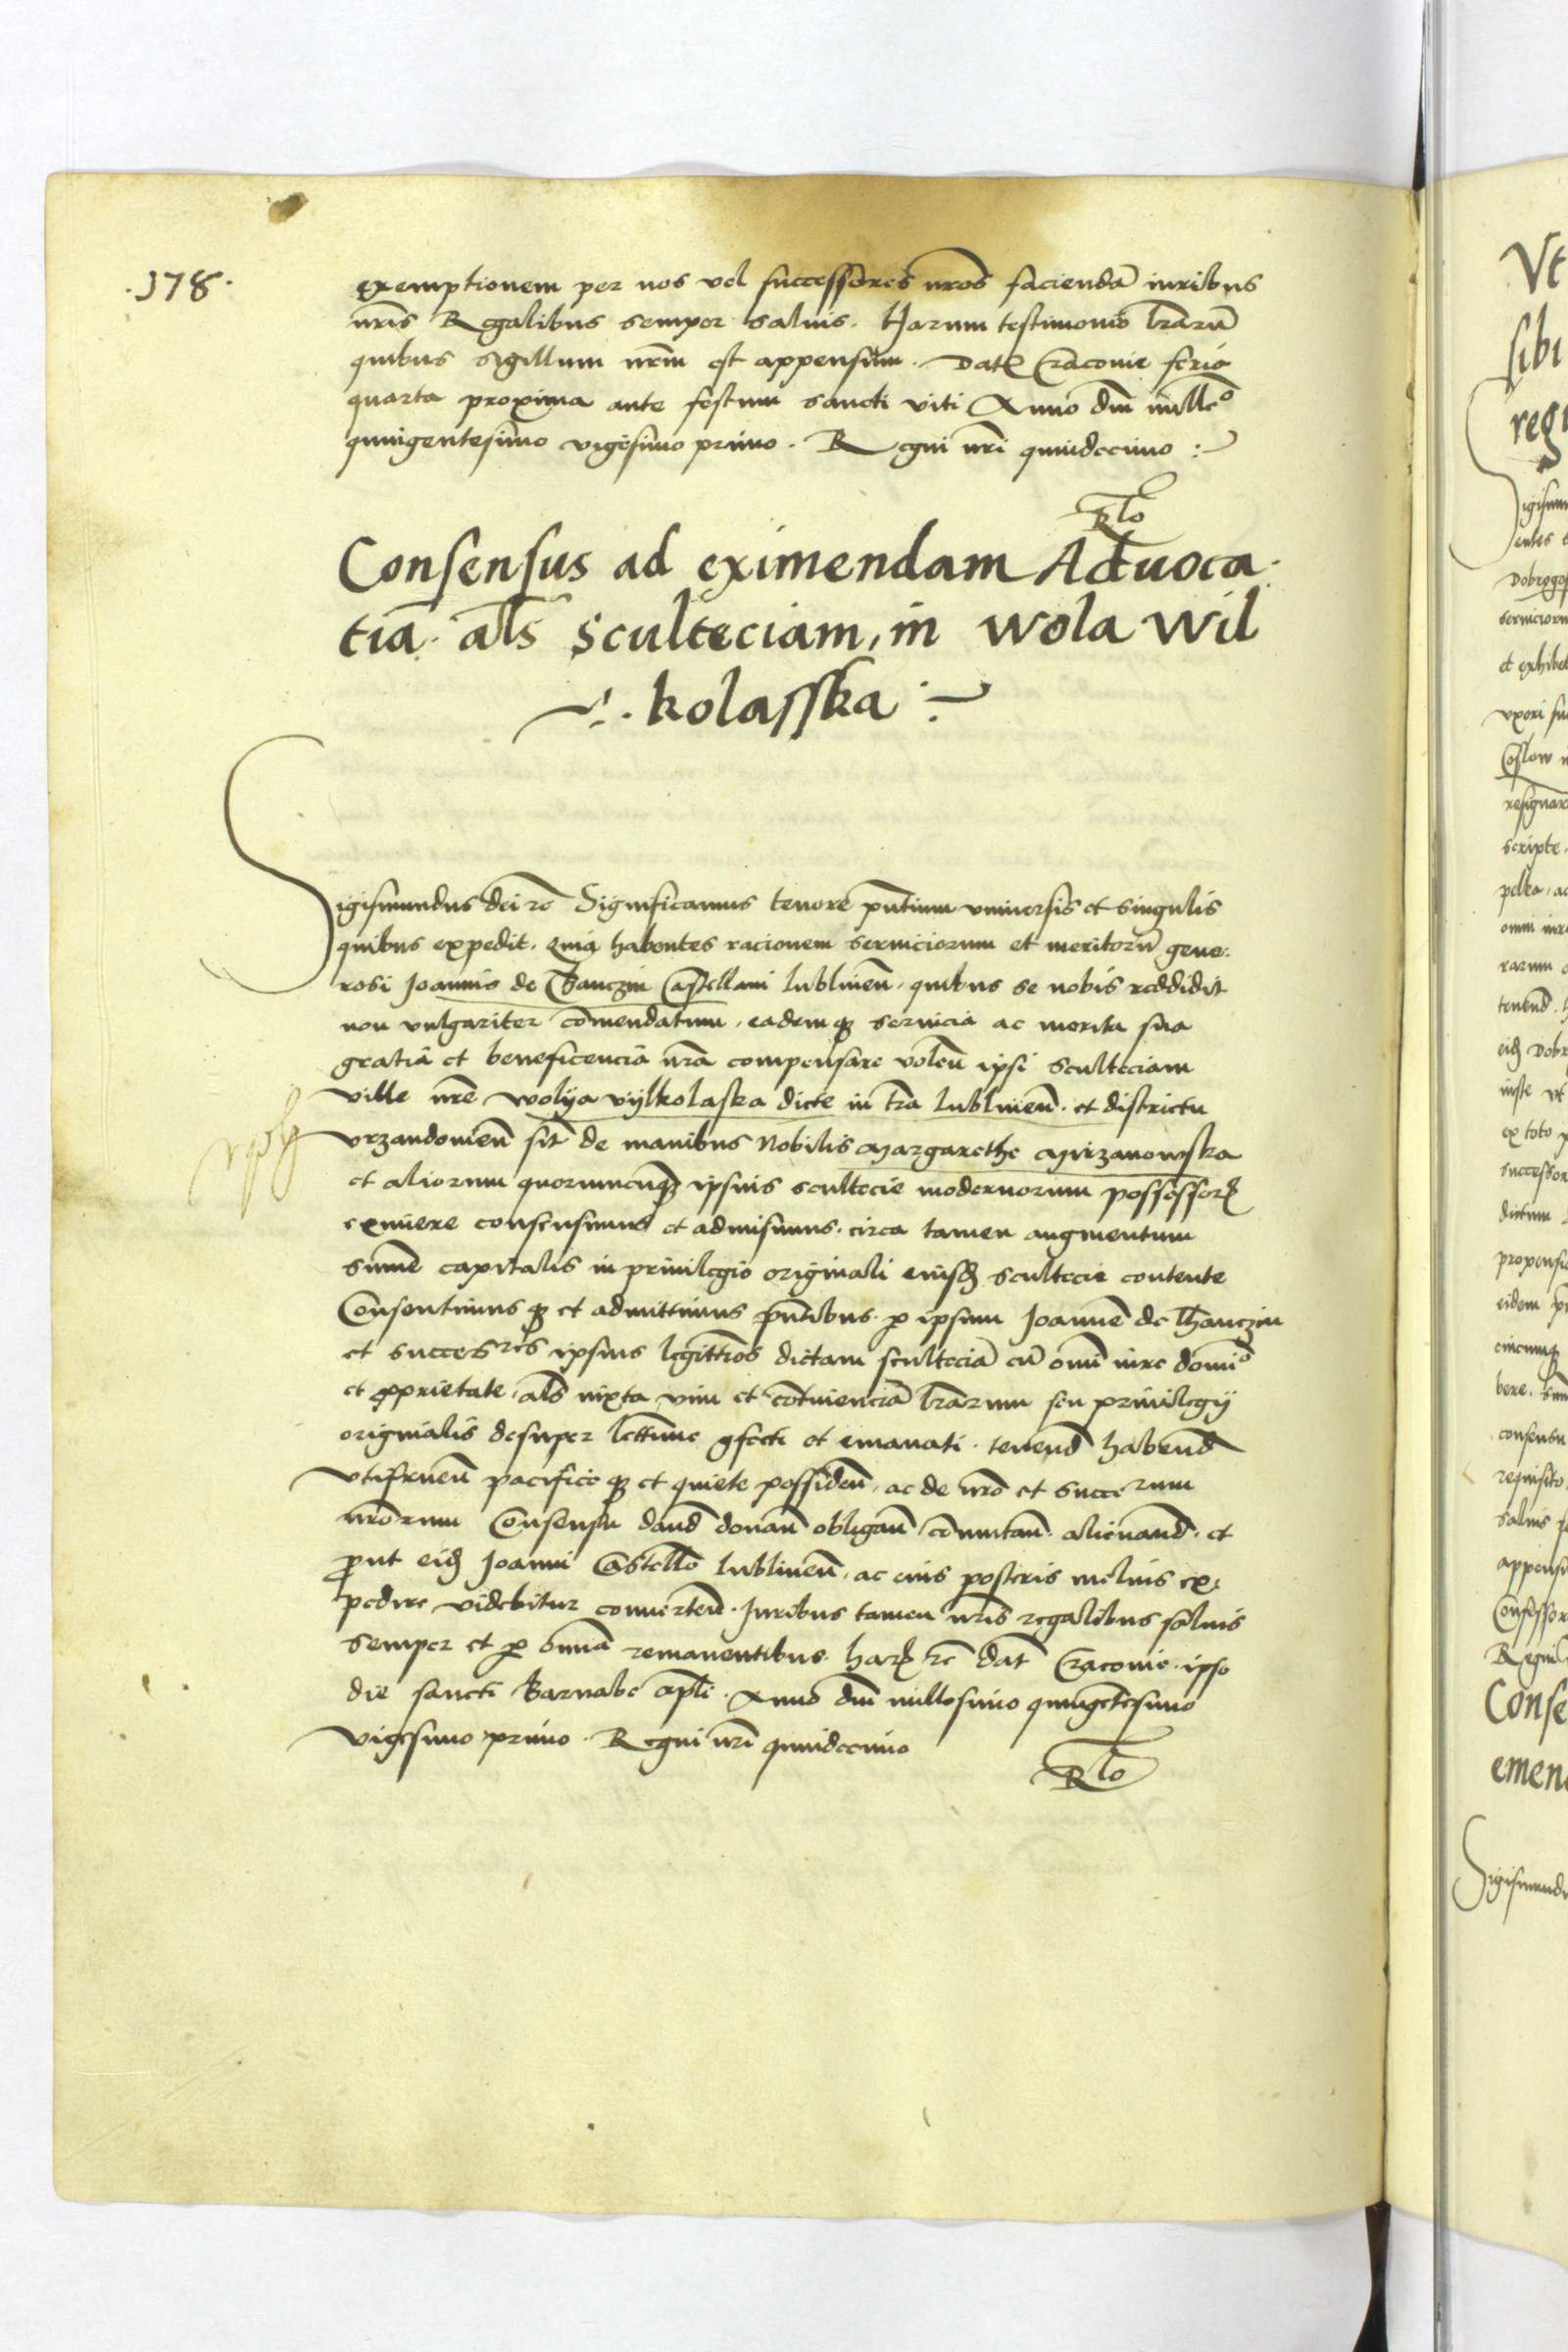 .178.
exemptionem per nos vel successores nr̄os faciendā iuribus
nr̄is Regalibus semper saluis. Harum testimonio lr̄arū
quibus sigillum nr̄m est appensum. Dat Cracouie feria
quarta proxima ante festum sancti viti Anno dni milleo
quingentesimo vigesimo primo. Regni nr̄i quindecimo :
Rto
Consensus ad eximendam Aduoca
tiā. al̄s Sculteciam, in Wola Wil
kolasska
Sigismundus dei rc̄ Significamus tenore pn̄tium vniuersis et singulis
quibus expedit. Quia habentes racionem seruiciorum et meritorū gene-
rosi Joannis de Thanczin Castellani lublinen̄. quibus se nobis reddidit
non vulgariter com̄endatum, eademq seruicia ac merita sua
gratiā et beneficenciā nr̄a compensare volen̄ ipsi sculteciam
ville nr̄e Wolya vylkolaska dicte in tr̄a lublinen̄. et districtu
vrzandouien̄ sit̄ de manibus Nobilis Margarethe Myrzanowska
et aliorum quorumcunq ipsius scultecie modernorum possessor
eximere consensimus et admisimus. circa tamen augmentum
sum̄e capitalis in priuilegio originali eiusd scultecie contente
Consentimus q et admittimus pn̄tibus. p ipsum Joannē de Thanczin
et succesres ipsius legittīos dictam sculteciā cū om̄i iure domīo
et pprietate. al̄s iuxta vim et contīnenciā lr̄arum seu priuilegij
originalis desuper lettime cfecti et emanati. tenend habend
vtifruen̄ pacifice q et quiete possiden̄. ac de nr̄o et succerum
nr̄orum Consensu dand donan̄ obligan̄ com̄utan̄. alienand. et
prout eid Joanni Castello lublinen̄. ac eius posteris melius ex-
pedire videbitur conuerten̄. Juribus tamen nr̄is regalibus saluis
semper et p om̄ia remanentibus. har rc̄ dat̄ Cracouie. ipso
die sancti Barnabe apl̄i. Anno dni millesimo quingētesimo
vigesimo primo. Regni nr̄i quindecimo
Rto
Vt
sibi